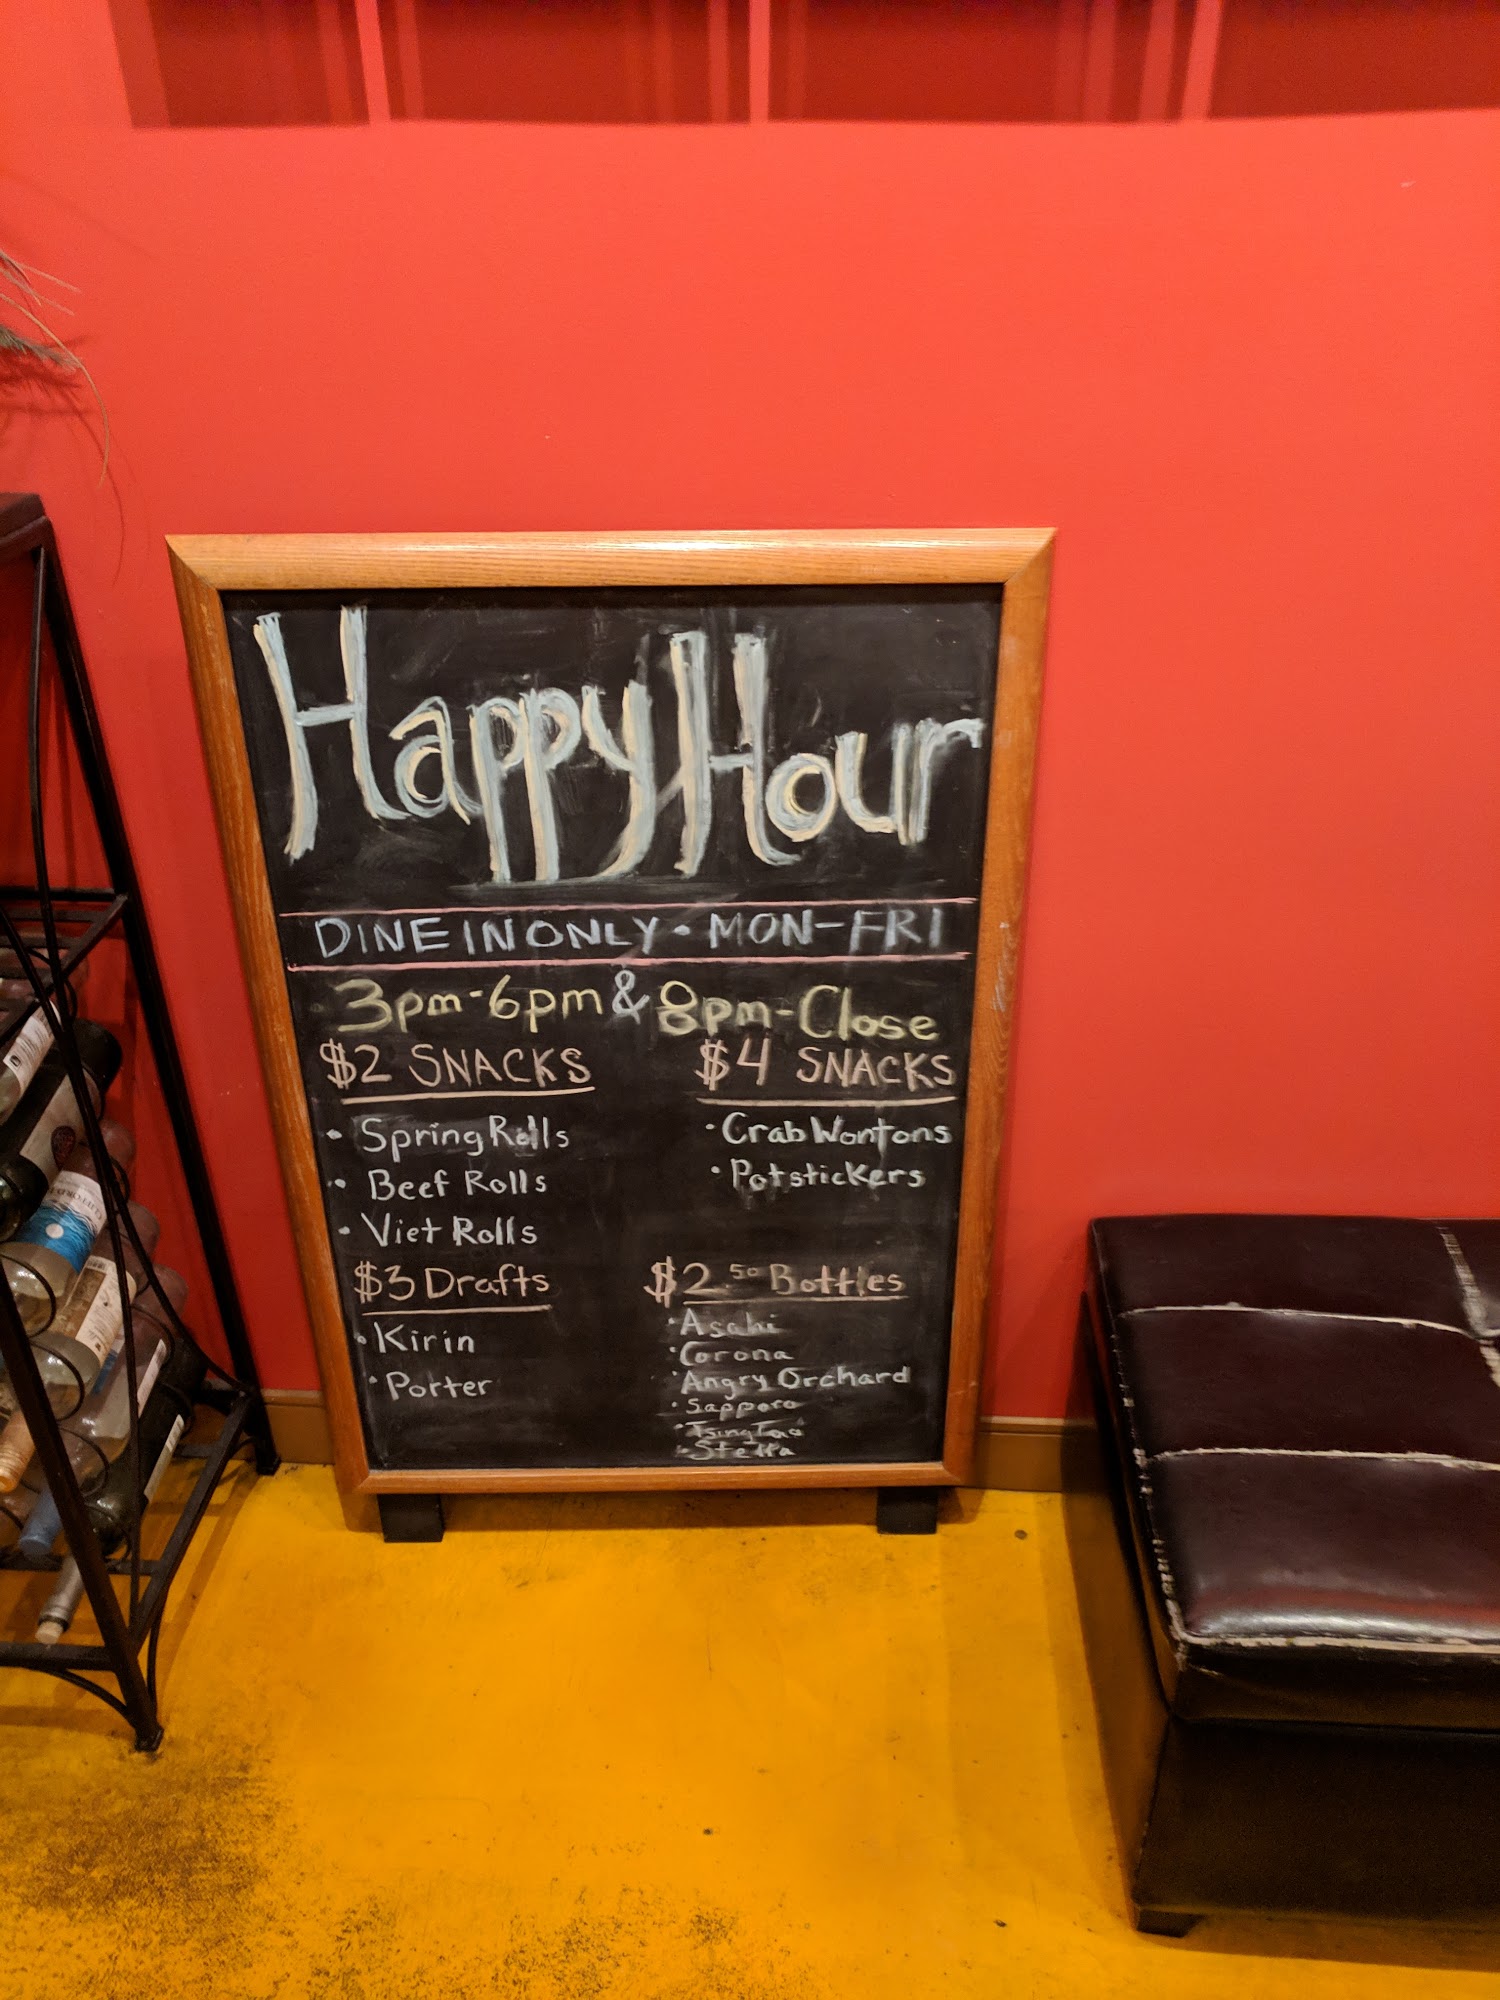 Happy Hour
DINE IN ONLY • MON-FRI
3pm-6pm & 8pm-Close
$2 SNACKS
• Spring Rolls
• Beef Rolls
• Viet Rolls
$4 SNACKS
• Crab Wontons
• Potstickers
$3 Drafts
• Kirin
• Porter
$2.50 Bottles
• Asahi
• Corona
• Angry Orchard
• Sapporo
• TsingTao
• Stella